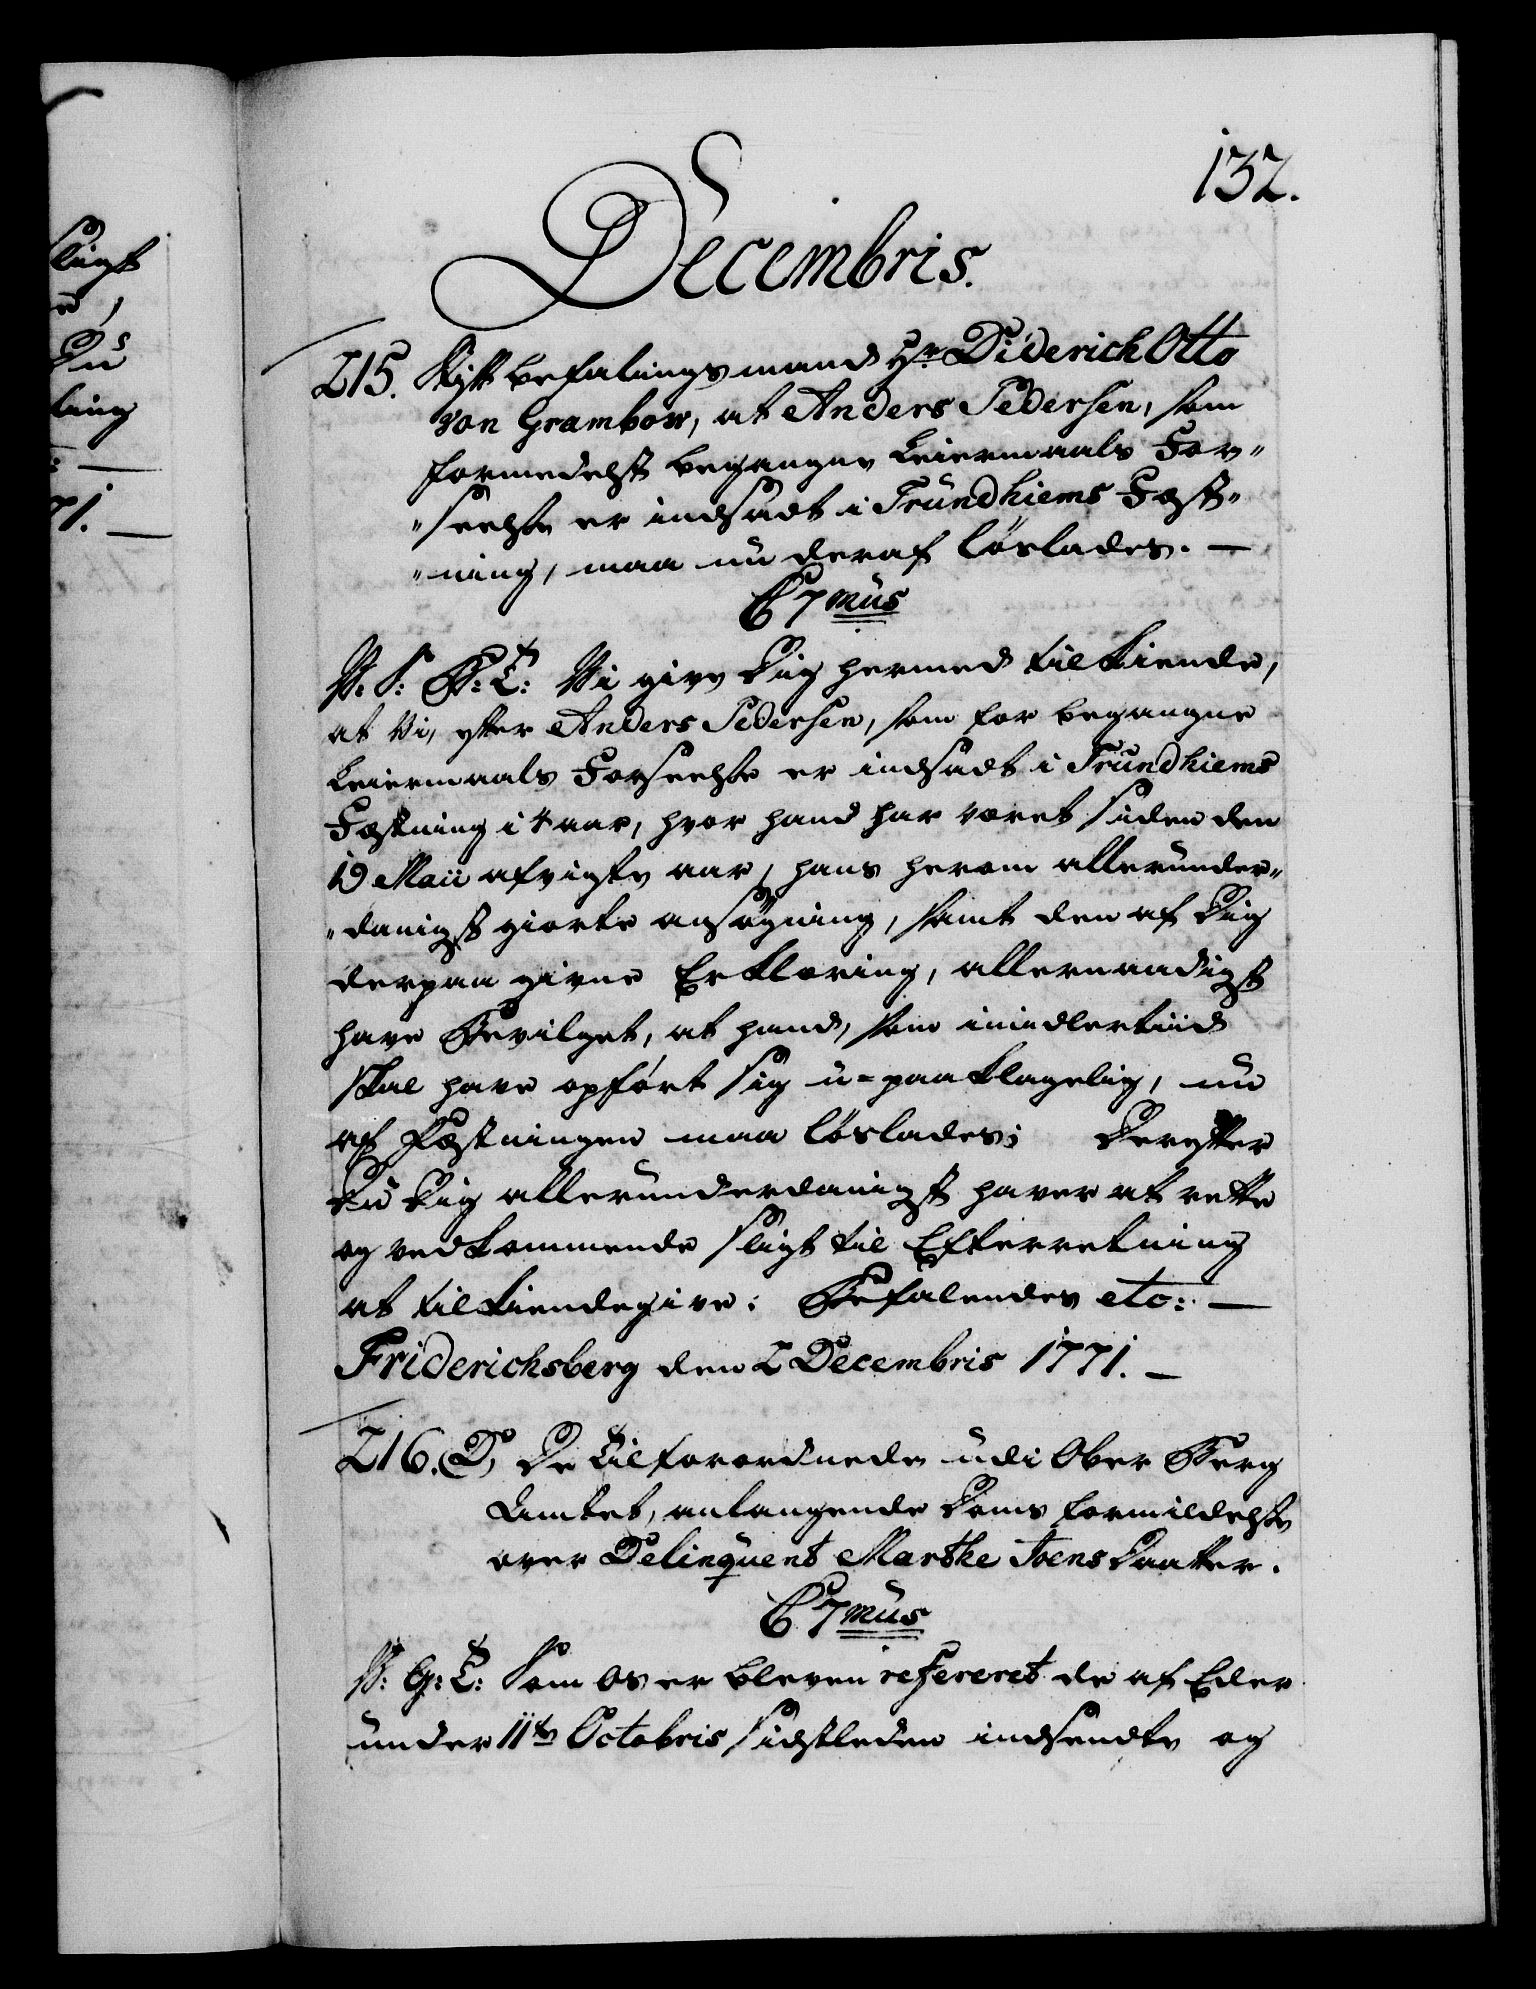 132.
Decembris.
215. Stift befalingsmand Hr. Diderich Otto
von Grambow, at Anders Pedersen, som
formedelst begangne Leiermaals For„
„seelse er indsadt i Trundhiems Fæst„
„ning, maa nu deraf löslades. —
C7mus
V. S. G. T: Vi give Dig hermed tilkiende,
at Vi, efter Anders Pedersen, som for begangne
Leiermaals Forseelse er indsadt i Trundhiems
Fæstning i 4 aar, hvor hand har været siden den
19 Maii afvigte aar, hans herom allerunder„
„danigst giorte ansøgning, samt den af Dig
derpaa givne Erklæring, allernaadigst
have Bevilget, at hand, som imidlertiid
skal have opført sig u-paaklagelig, nu
af Fæstningen maa löslades; Derefter
Du Dig allerunderdanigst haver at rette
og vedkommende sligt til Efterretning
at tilkiendegive. Befalendes etc: —
Friderichsberg den 2 Decembris 1771. —
216. De Tilforordnede udi Ober Berg
Amtet, anlangende Doms formildelse
over Delinquent Marthe Joens Daatter.
C7mus
V. G: T: Som Os er bleven refereret de af Eder
under 11te Octobris sidstleden indsendte og
sligt
Du
ling
71. —